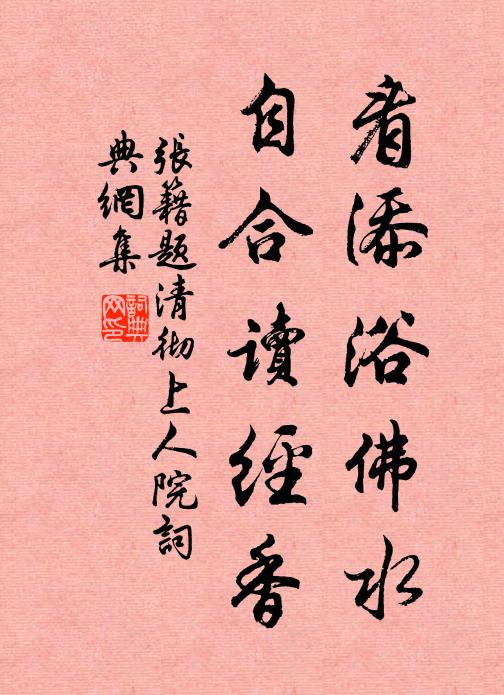 看添浴佛水
自合讀經香
張籍題清彻上人院詞
典網集
詞典
网印